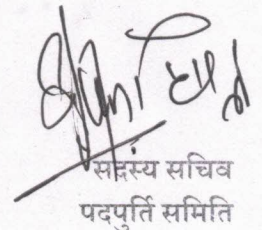 सदस्य सचिव
पदपुर्ति समिति